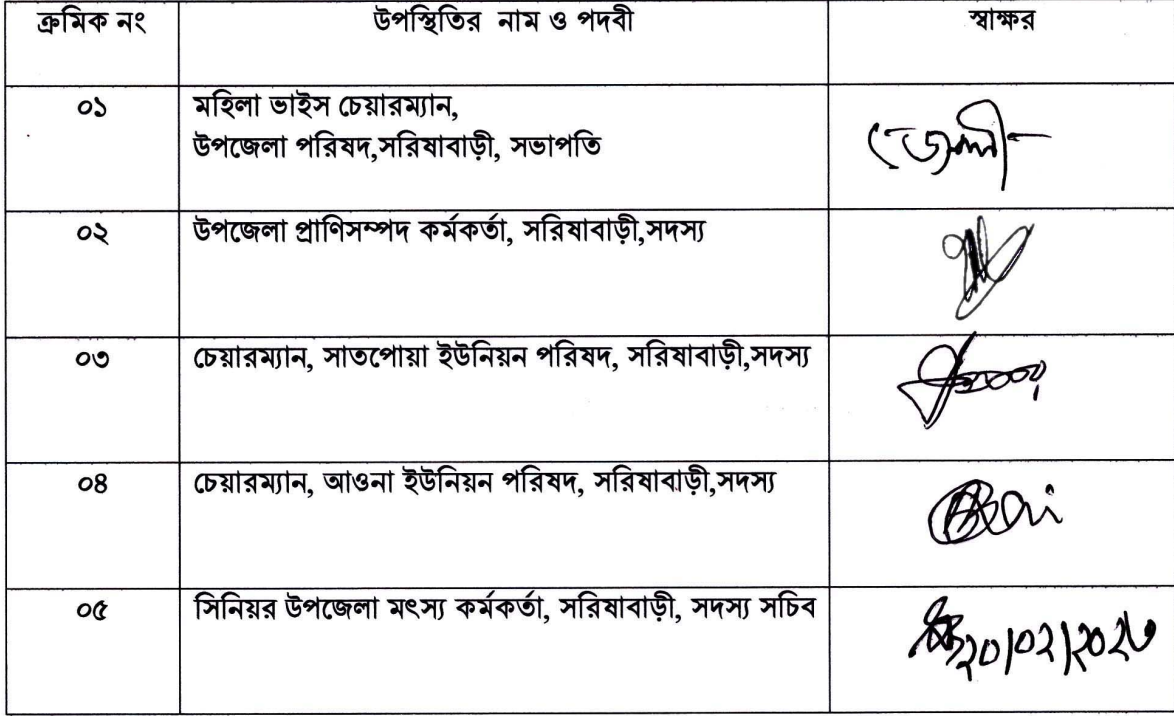 ক্রমিক নং উপস্থিতির নাম ও পদবী স্বাক্ষর
০১ মহিলা ভাইস চেয়ারম্যান,
উপজেলা পরিষদ,সরিষাবাড়ী, সভাপতি
জেলী
০২ উপজেলা প্রাণিসম্পদ কর্মকর্তা, সরিষাবাড়ী,সদস্য
০৩ চেয়ারম্যান, সাতপোয়া ইউনিয়ন পরিষদ, সরিষাবাড়ী,সদস্য
০৪ চেয়ারম্যান, আওনা ইউনিয়ন পরিষদ, সরিষাবাড়ী,সদস্য
০৫ সিনিয়র উপজেলা মৎস্য কর্মকর্তা, সরিষাবাড়ী, সদস্য সচিব
২০/০২/২০২৩